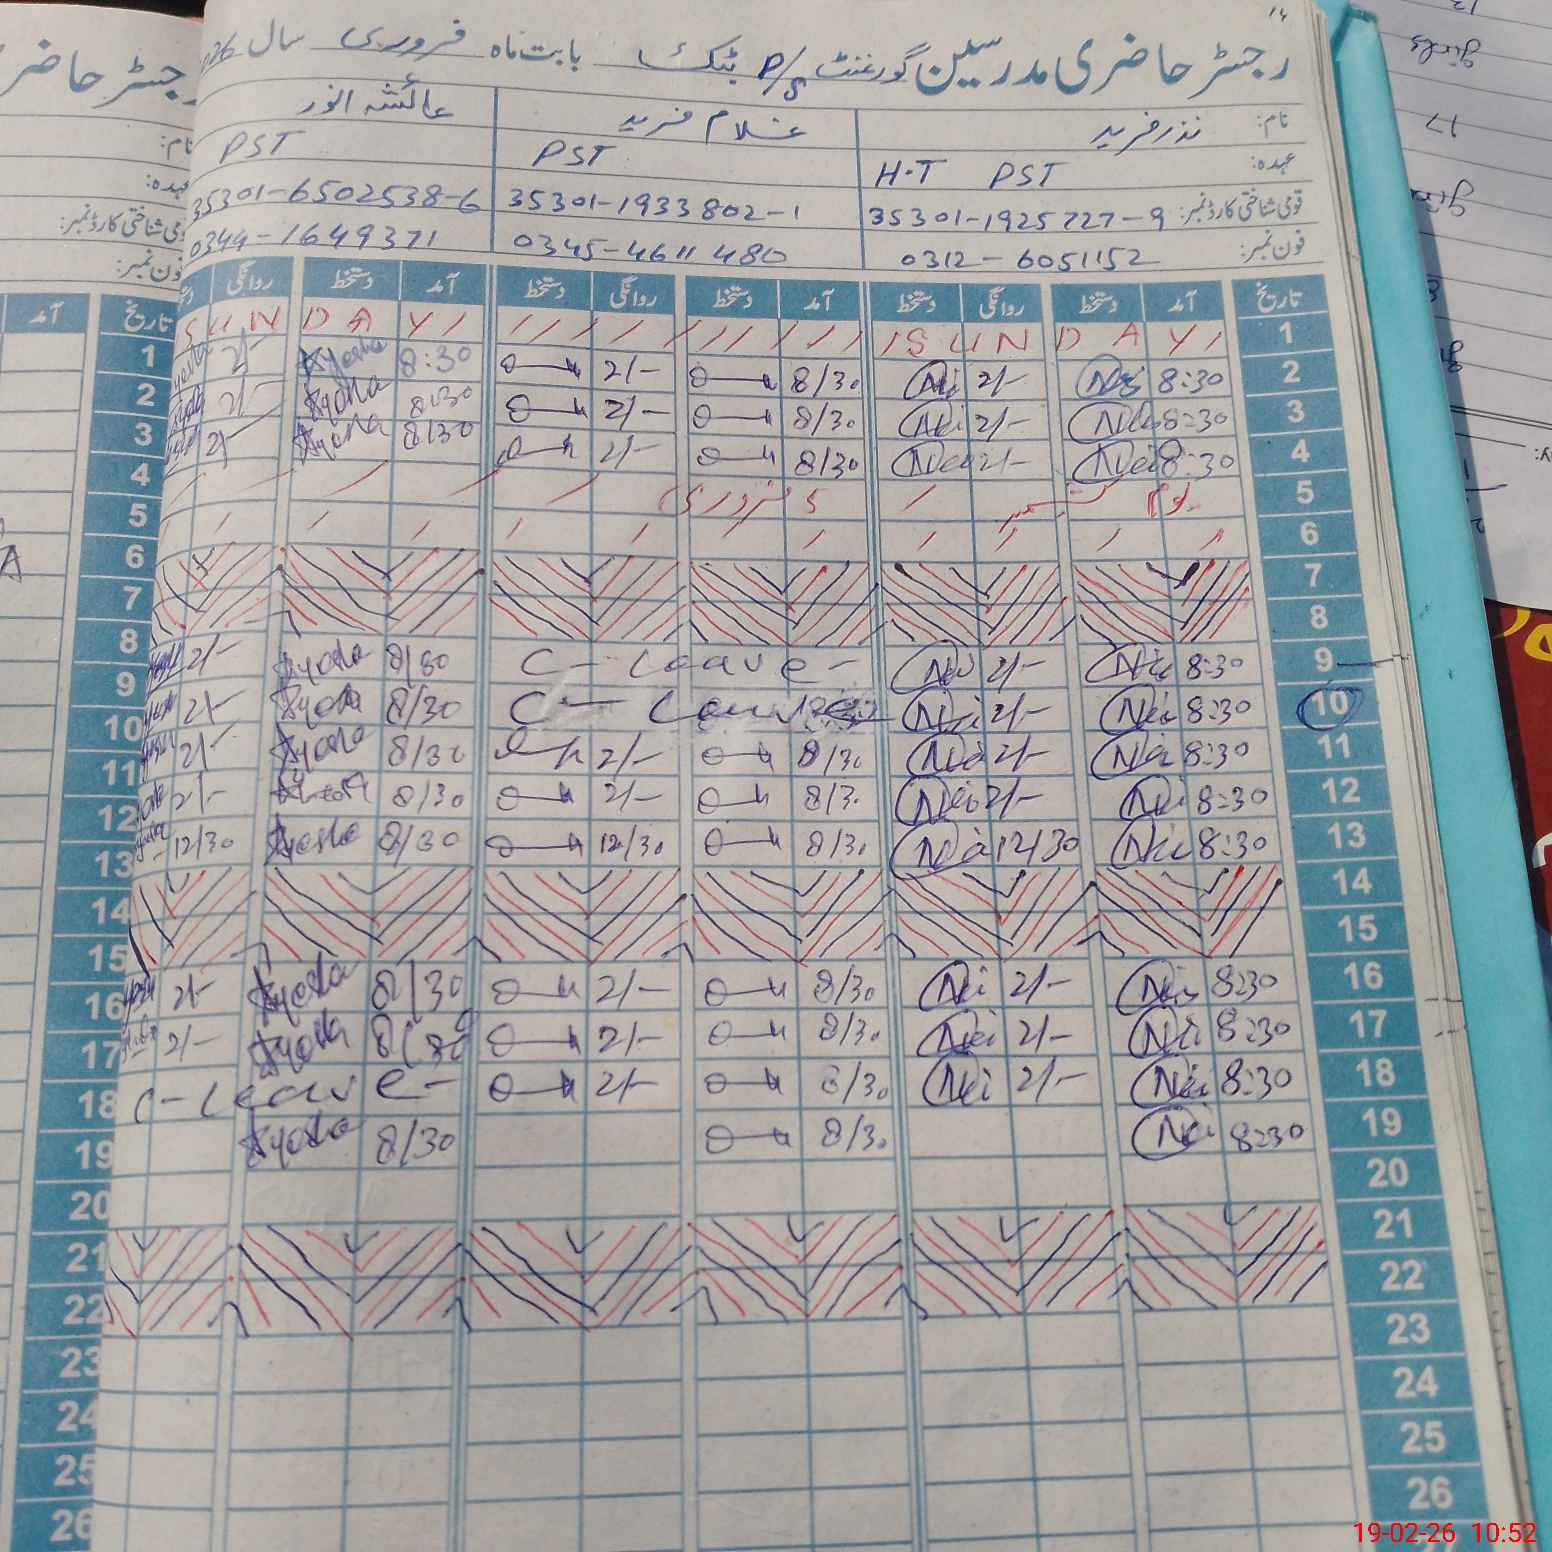 رجسٹر حاضری مدرسین گورنمنٹ P/S بابت ماہ فروری سال
نام: نذر فرید غلام فرید عائشہ انور
عہدہ: H.T PST PST PST
قومی شناختی کارڈ نمبر: 35301-1925727-9 35301-1933802-1 35301-6502538-6
فون نمبر: 0312-6051152 0345-4611480 0344-1649371
تاریخ آمد دستخط روانگی دستخط آمد دستخط روانگی دستخط آمد دستخط روانگی
1 SUNDAY SUNDAY
2 8:30 2/- 8/30 2/- 8:30 2/-
3 8:30 2/- 8/30 2/- 8:30 2/-
4 8:30 2/- 8/30 2/- 8/30 2/-
5 یوم کشمیر 5 فروری
6
7
8
9 8:30 2/- C-Leave- 8/30 2/-
10 8:30 2/- C-Leave 8/30 2/-
11 8:30 2/- 8/30 2/- 8/30 2/-
12 8:30 2/- 8/30 2/- 8/30 2/-
13 8:30 12/30 8/30 12/30 8/30 12/30
14
15
16 8:30 2/- 8/30 2/- 8/30 2/-
17 8:30 2/- 8/30 2/- 8/30 2/-
18 8:30 2/- 8/30 2/- C-Leave-
19 8:30 8/30 8/30
20
21
22
23
24
25
26
رجسٹر حاضر
نام:
عہدہ:
قومی شناختی کارڈ نمبر:
فون نمبر:
تاریخ آمد
1
2
3
4
5
6
7
8
9
10
11
12
13
14
15
16
17
18
19
20
21
22
23
24
25
26
19-02-26 10:52